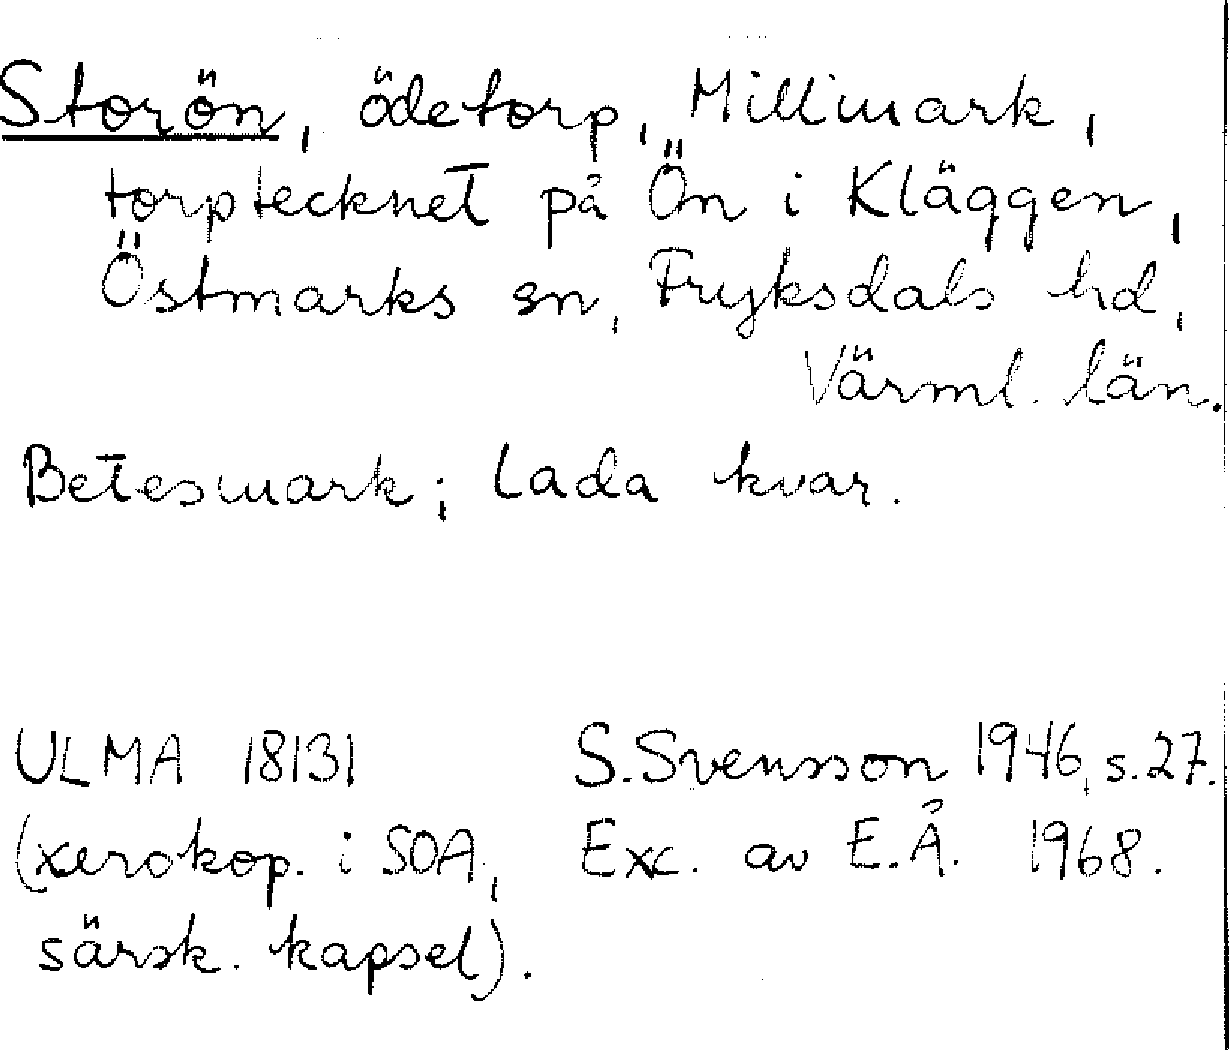 Storön, ödetorp, Millmark,
torptecknet på Ön i Kläggen,
Östmarks sn, Fryksdals hd,
Värml. län.
Betesmark; Lada kvar.
ULMA 18131
(xerokop. i SOA,
särsk. kapsel).
S. Svensson 1946, s. 27.
Exc. av E.Å. 1968.